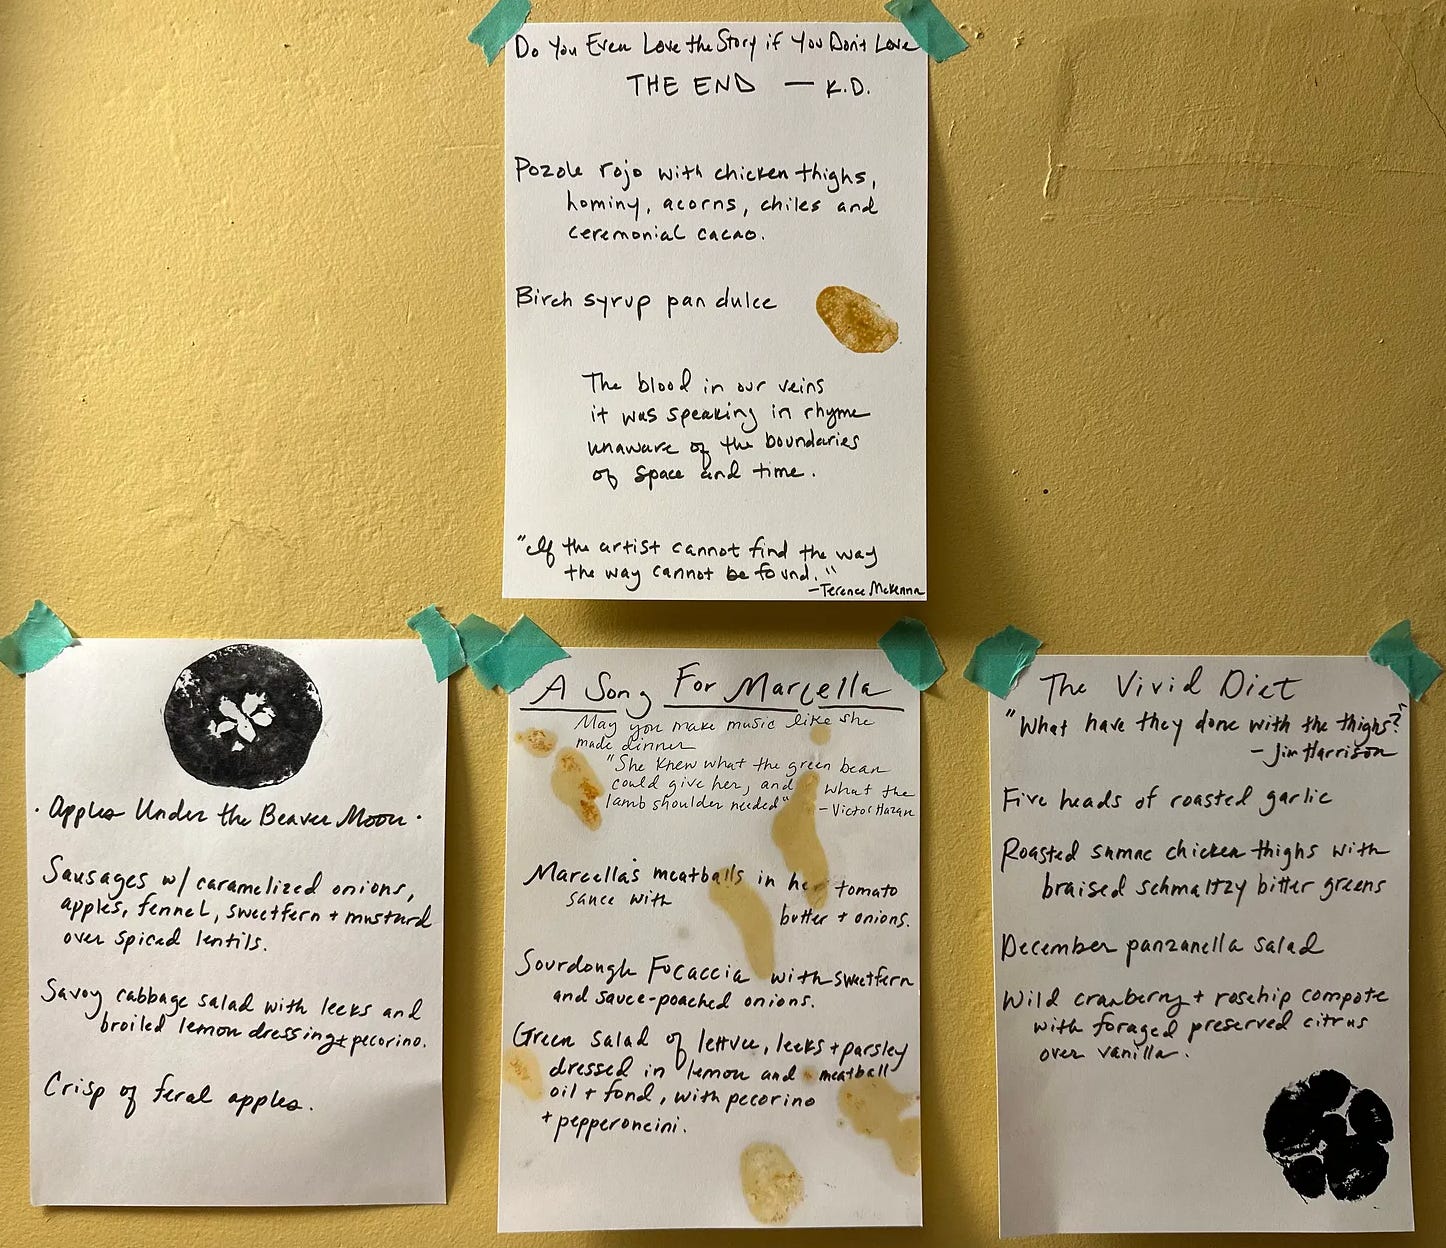 Do You Even Love the Story if You Don't Love
THE END — K.D.
Pozole rojo with chicken thighs,
hominy, acorns, chiles and
ceremonial cacao.
Birch syrup pan dulce
The blood in our veins
it was speaking in rhyme
unaware of the boundaries
of space and time.
"If the artist cannot find the way
the way cannot be found."
-Terence McKenna
· Apples Under the Beaver Moon ·
Sausages w/ caramelized onions,
apples, fennel, sweetfern + mustard
over spiced lentils.
Savoy cabbage salad with leeks and
broiled lemon dressing + pecorino.
Crisp of feral apples.
A Song For Marcella
May you make music like she
made dinner
"She knew what the green bean
could give her, and what the
lamb shoulder needed"
- Victor Hazan
Marcella's meatballs in her tomato
sauce with butter + onions.
Sourdough Focaccia with sweetfern
and sauce-poached onions.
Green salad of lettuce, leeks + parsley
dressed in lemon and meatball
oil + fond, with pecorino
+ pepperoncini.
The Vivid Diet
"What have they done with the thighs?"
- Jim Harrison
Five heads of roasted garlic
Roasted sumac chicken thighs with
braised schmaltzy bitter greens
December panzanella salad
Wild cranberry + rosehip compote
with foraged preserved citrus
over vanilla.